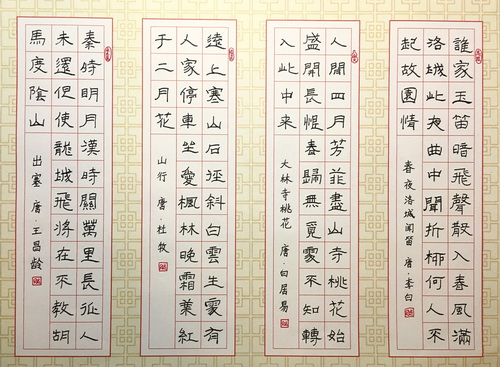 誰家玉笛暗飛聲散入春風滿
洛城此夜曲中聞折柳何人不
起故園情
春夜洛城聞笛 唐·李白
人間四月芳菲盡山寺桃花始
盛開長恨春歸無覓處不知轉
入此中来
大林寺桃花 唐·白居易
遠上寒山石徑斜白雲生處有
人家停車坐愛楓林晚霜葉紅
于二月花
山行 唐·杜牧
秦時明月漢時關萬里長征人
未還但使龍城飛將在不教胡
馬度陰山
出塞 唐·王昌齡